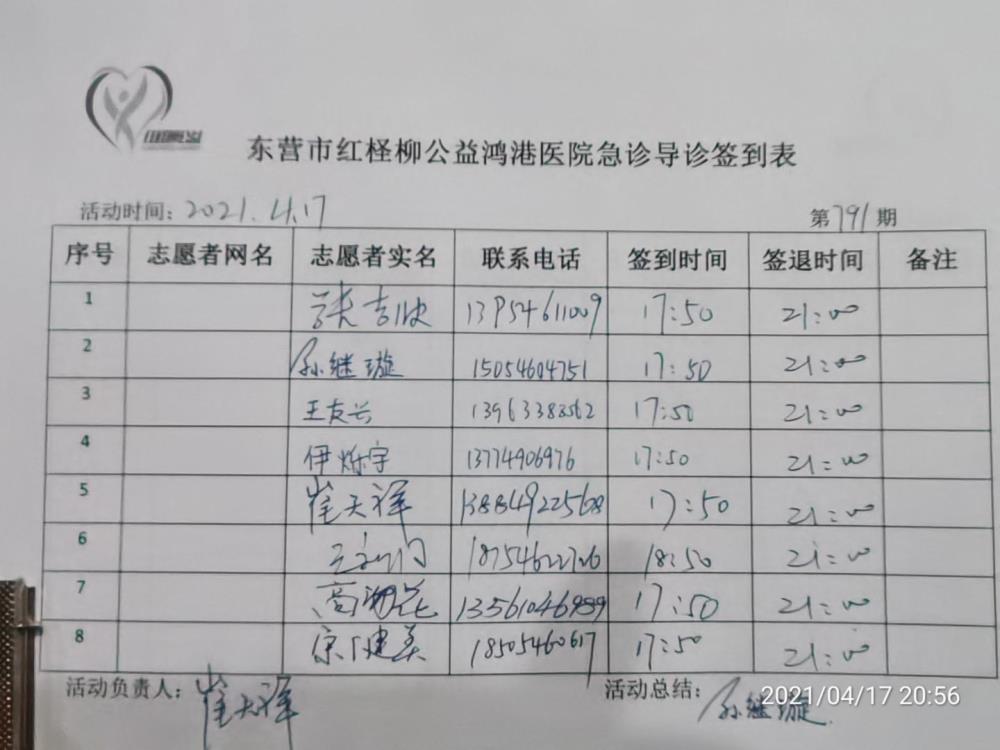 东营市红柽柳公益鸿港医院急诊导诊签到表
活动时间:2021.4.17 第791期
序号 志愿者网名 志愿者实名 联系电话 签到时间 签退时间 备注
1 张吉收 13954611009 17:50 21:00
2 孙继璇 15054604751 17:50 21:00
3 王友兴 13963383562 17:50 21:00
4 伊烁宇 13774906976 17:50 21:00
5 崔天祥 13884922568 17:50 21:00
6 18:50 21:00
7 高 花 13561046989 17:50 21:00
8 宗健美 18505460617 17:50 21:00
活动负责人:崔天祥 活动总结:孙继璇
2021/04/17 20:56